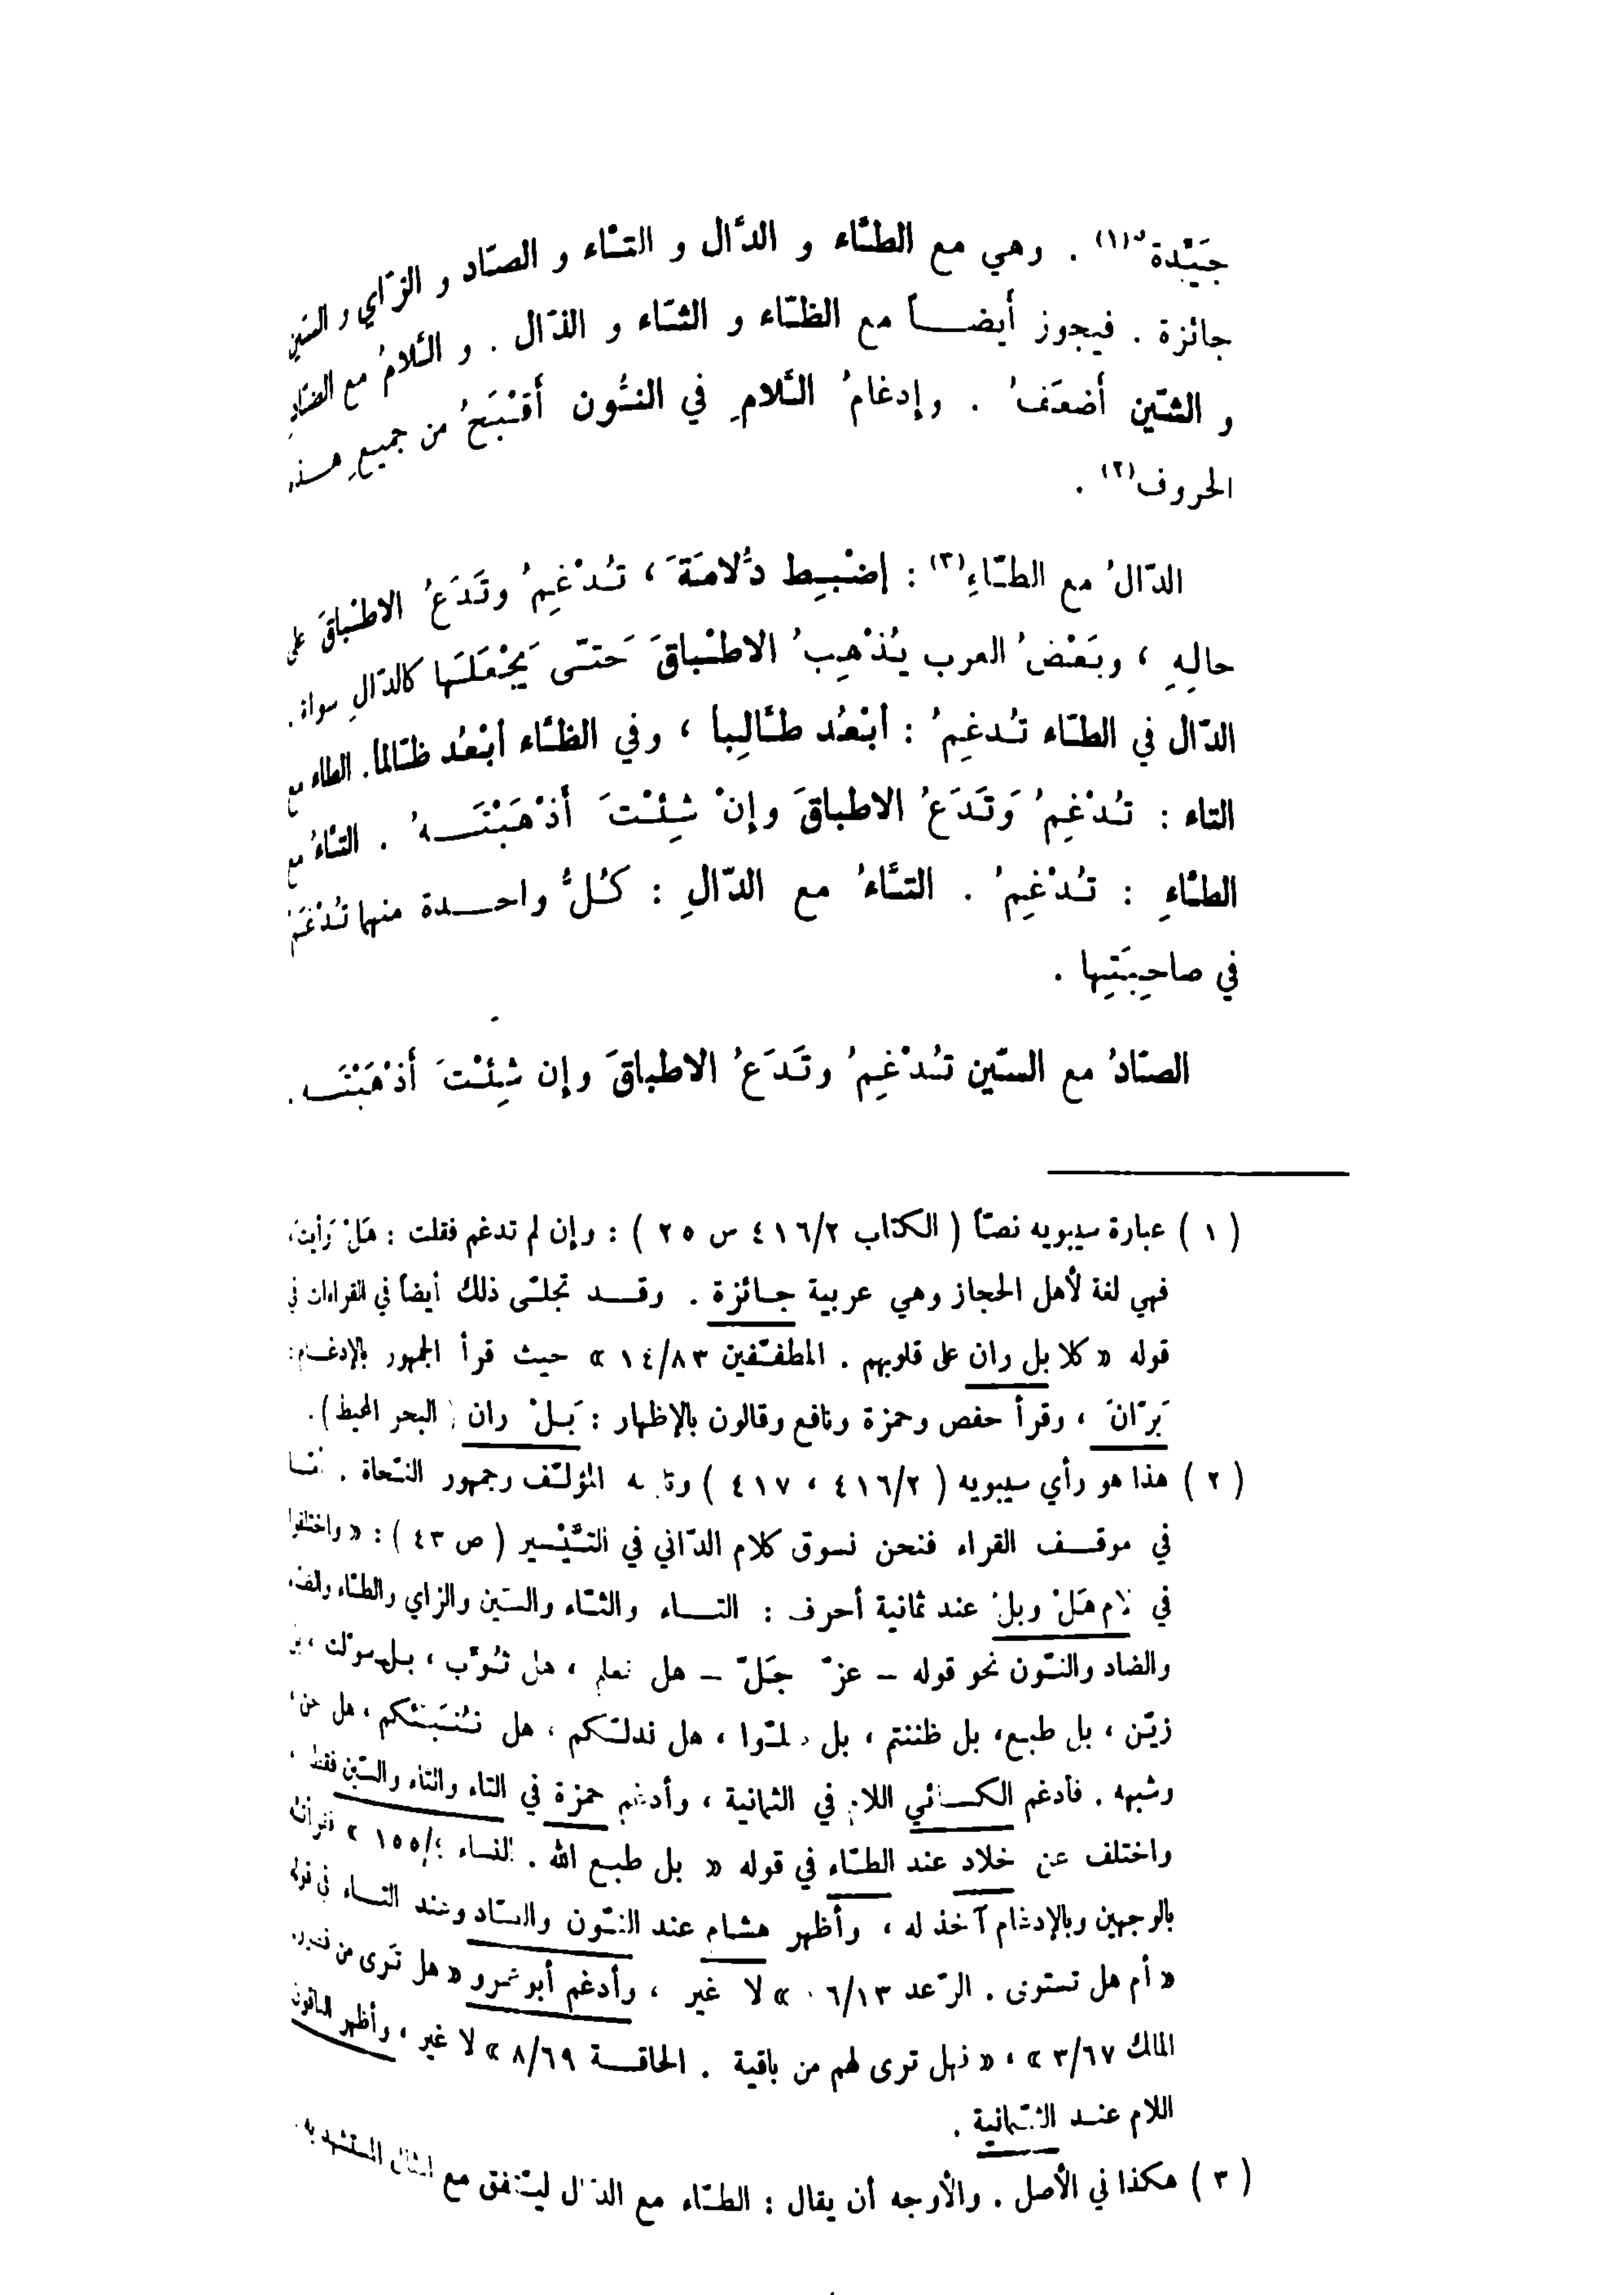 جَيِّدة(١) . وهي مع الطّاء و الدّال و التّاء و الصّاد و الزّاي و السّين
جائزة . فيجوز أيضـــاً مع الظّاء و الثّاء و الذّال . و اللّامُ مع الضّادِ
و الشّين أضعَفُ . وإدغامُ اللّامِ في النُّون أقْبَحُ من جميعِ هــذه
الحروف(٢) .
الدّالُ مع الطّاءِ(٣) : إضْبِط دُّلامَةَ ، تُدْغِمُ وتَدَعُ الاطْباقَ على
حالِهِ ، وبَعْضُ العرب يُذْهِبُ الاطْباقَ حَتّى يَجْعَلَها كالدّالِ سواءً .
الدّال في الطّاء تُدغِمُ : أبْعُد طّالِبا ، وفي الظّاء أبْعُد ظّالماً . الطاء مع
التاء : تُدْغِمُ وَتَدَعُ الاطباقَ وإنْ شِئْتَ أذْهَبْتَـــهُ . التّاءُ مع
الطّاءِ : تُدْغِمُ . التّاءُ مع الدّالِ : كُلُّ واحـــدة منهما تُدْغَمُ
في صاحِبَتِها .
الصّادُ مع السّين تُدْغِمُ وتَدَعُ الاطباقَ وإن شِئْتَ أذْهَبْتَــه .
( ١ ) عبارة سيبويه نصّاً ( الكتاب ٤١٦/٢ س ٢٥ ) : وإن لم تدغم فقلت : هَلْ رَأيتَ ،
فهي لغة لأهل الحجاز وهي عربية جــائزة . وقــد تجلّى ذلك أيضاً في القراءات في
قوله « كلا بل ران على قلوبهم . المطففّين ١٤/٨٣ » حيث قرأ الجمهور بالإدغــام :
بَرّانَ ، وقرأ حفص وحمزة ونافع وقالون بالإظهار : بَلْ ران ( البحر المحيط ) .
( ٢ ) هذا هو رأي سيبويه ( ٤١٦/٢ ، ٤١٧ ) المؤلّف وجمهور النّحاة . أمّــا
في موقــف القراء فنحن نسوق كلام الدّاني في التَّيْسير ( ص ٤٣ ) : « واختلفوا
في لام هَلْ وبلْ عند ثمانية أحرف : التــاء والثّاء والسّين والزاي والطّاء والظاء
والضاد والنّون نحو قوله – عزّ جَلّ – هل تعلم ، هل ثُوّب ، بل سوّلت ، بل
زيّن ، بل طبع ، بل ظننتم ، بل ضلّوا ، هل ندلّكم ، هل نُنَبّئكم ، هل نحن ،
وشبهه . فأدغم الكسائي اللام في الثمانية ، وأدغم حمزة في التاء والثاء والسّين فقط ،
واختلف عن خلاد عند الطّاء في قوله « بل طبع الله . النساء ١٥٥/٤ » فقرأتُ
بالوجهين وبالإدغام آخذ له ، وأظهر هشام عند النّون والضّاد وعند التــاء في قوله
« أم هل تستوى . الرّعد ١٣/ » لا غير ، وأدغم أبو عمرو « هل تَرى من فطور .
الملك ٣/٦٧ » ، « فهل ترى لهم من باقية . الحاقــة ٨/٦٩ » لا غير ، وأظهر الباقون
اللام عنــد الثّمانية .
( ٣ ) هكذا في الأصل . والأوجه أن يقال : الطّاء مع الدّال ليتّفق مع المثال المستشهد به .